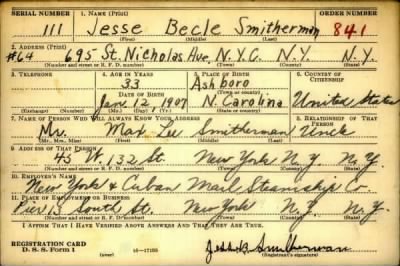 SERIAL NUMBER 1. NAME (Print) ORDER NUMBER
111 Jesse Becle Smitherman 841
(First) (Middle) (Last)
2. ADDRESS (Print)
#64 695 St. Nicholas Ave, N.Y.C. N.Y. N.Y.
(Number and street or R. F. D. number) (Town) (County) (State)
3. TELEPHONE 4. AGE IN YEARS 5. PLACE OF BIRTH 6. COUNTRY OF CITIZENSHIP
33 Ashboro
DATE OF BIRTH (Town or county)
Jan. 12, 1907 N. Carolina United States
(Exchange) (Number) (Mo.) (Day) (Yr.) (State or country)
7. NAME OF PERSON WHO WILL ALWAYS KNOW YOUR ADDRESS 8. RELATIONSHIP OF THAT PERSON
Mr. Max Lee Smitherman Uncle
(Mr., Mrs., Miss) (First) (Middle) (Last)
9. ADDRESS OF THAT PERSON
45 W. 132 St. New York N.Y. N.Y.
(Number and street or R. F. D. number) (Town) (County) (State)
10. EMPLOYER'S NAME
New York & Cuban Mail Steamship Co.
11. PLACE OF EMPLOYMENT OR BUSINESS
Pier 13 South St. New York N.Y. N.Y.
(Number and street or R. F. D. number) (Town) (County) (State)
I AFFIRM THAT I HAVE VERIFIED ABOVE ANSWERS AND THAT THEY ARE TRUE.
REGISTRATION CARD
D. S. S. Form 1 16-17105 Jesse B. Smitherman
(Registrant's signature)